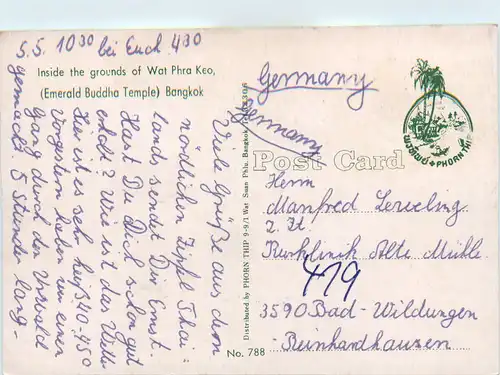 5.5. 10³⁰ bei Euch 4³⁰
Inside the grounds of Wat Phra Keo,
(Emerald Buddha Temple) Bangkok
Viele Grüße aus dem
nördlichen Zipfel Thai-
lands sendet Dir Ernst.
Hast Du Dich schon gut
erholt? Wie ist das Wetter
Hier ist es sehr heiß 40-45°
Vorgestern haben wir einen
Gang durch den Urwald
gemacht. 5 Stunden lang-
Distributed by PHORN THIP 9-9/1 Wat Suan Phlu, Bangkok,
No. 788
Germany
Germany
PHORN THIP
Post Card
Herrn
Manfred
z. Zt.
Kurklinik Alte Mühle
419
3590 Bad-Wildungen-
Reinhardshausen